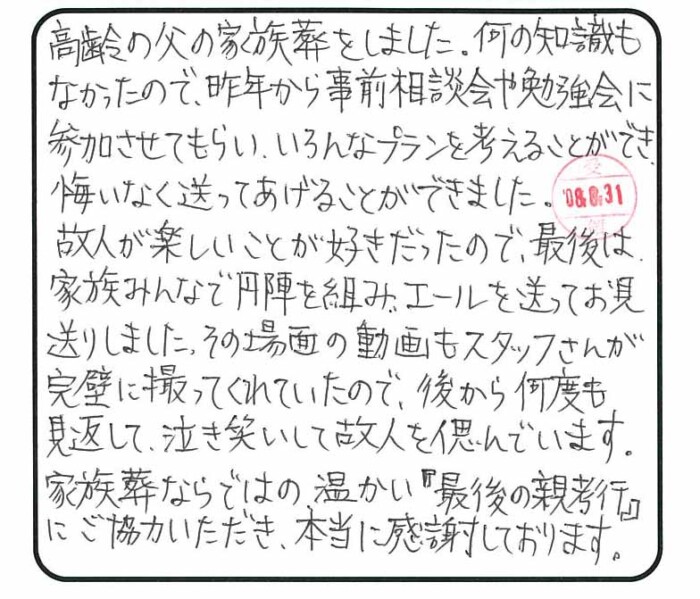 高齢の父の家族葬をしました。何の知識も
なかったので、昨年から事前相談会や勉強会に
参加させてもらい、いろんなプランを考えることができ、
悔いなく送ってあげることができました。
受
'08.8.31
付
故人が楽しいことが好きだったので、最後は、
家族みんなで円陣を組み、エールを送ってお見
送りしました。その場面の動画もスタッフさんが
完璧に撮ってくれていたので、後から何度も
見返して、泣き笑いして故人を偲んでいます。
家族葬ならではの温かい『最後の親孝行』
にご協力いただき、本当に感謝しております。